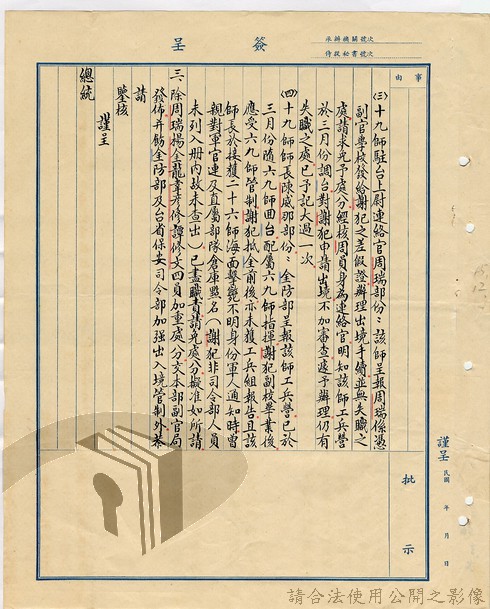 簽呈
承辦機關號次
侍從秘書號次
事由
㈢十九師駐台上尉連絡官周瑞部份：該師呈報周瑞係憑
副官學校發給謝犯之差假證辦理出境手續並無失職之
處請求免予處分經核周員身為連絡官明知該師工兵營
於三月份調台對謝犯申請出境不加審查遽予辦理仍有
失職之處已予記大過一次
㈣十九師師長陳威那部份：金防部呈報該師工兵營已於
三月份隨六九師由台配屬六九師指揮謝犯副校畢業後
應受六九師管制謝犯抵金前後亦未獲工兵組報告且該
師長於接獲二十六師海面擊斃不明身份軍人通知時曾
親對軍官連及直屬部隊倉庫點名（謝犯非司令部人員
未列入冊內故未查出）已盡職責請免處分擬准如所請
三、除周瑞揚金龍韋彥修譚修文四員加重處分交本部副官局
發佈并飭金防部及台省保安司令部加強出入境管制外恭
請
鑒核
謹呈
總統
謹呈
民國 年 月 日
批示
請合法使用公開之影像